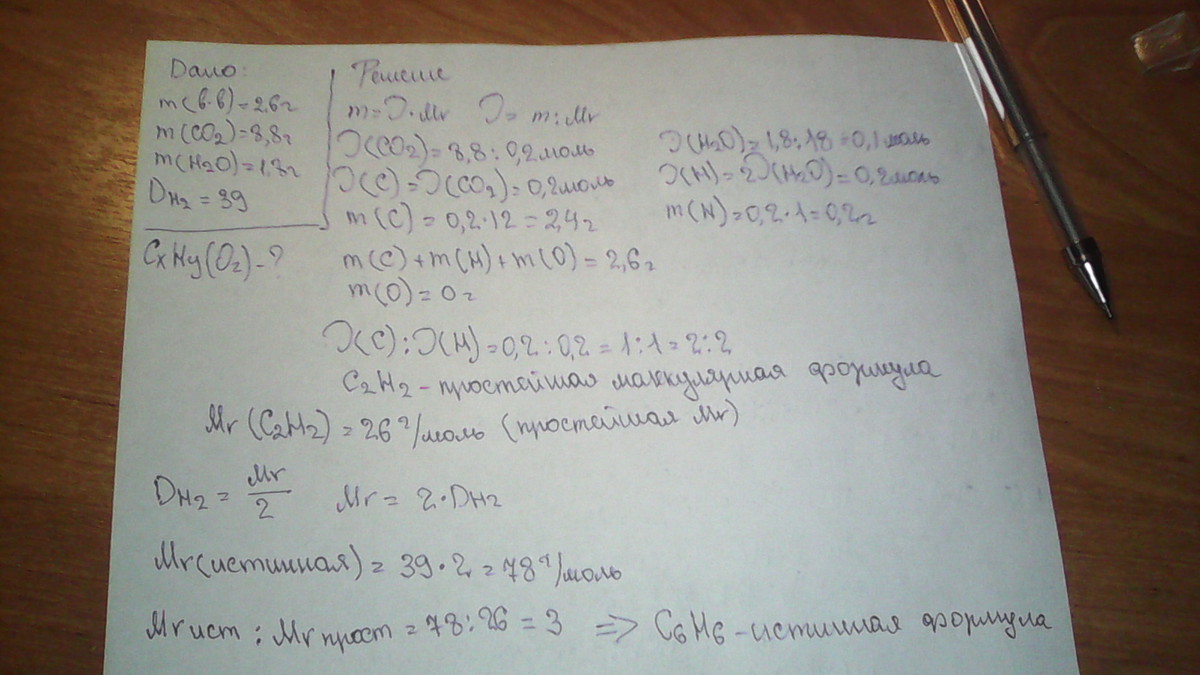 Дано:
m(в-в)=2,6г
m(CO2)=8,8г
m(H2O)=1,8г
DH2 = 39
CxHy(O2)-?
Решение
m=ν·Mr ν= m:Mr
ν(CO2)=8,8:0,2моль
ν(C)=ν(CO2)=0,2моль
m(C)=0,2·12=2,4г
ν(H2O)=1,8:18=0,1моль
ν(H)=2ν(H2O)=0,2моль
m(H)=0,2·1=0,2г
m(C)+m(H)+m(O)=2,6г
m(O)=0г
ν(C):ν(H)=0,2:0,2=1:1=2:2
C2H2-простейшая маккулярная формула
Mr(C2H2)=26г/моль (простейшая Mr)
DH2 = Mr/2 Mr = 2·DH2
Mr(истинная)= 39·2=78г/моль
Mr ист : Mr прост = 78:26=3 => C6H6-истинная формула